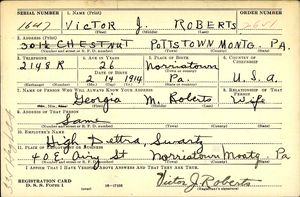 SERIAL NUMBER 1. NAME (Print) ORDER NUMBER
1647 VICTOR J. ROBERTS
2. ADDRESS (Print)
301½ CHESTNUT POTTSTOWN MONTG. PA.
3. TELEPHONE 4. AGE IN YEARS 5. PLACE OF BIRTH 6. COUNTRY OF CITIZENSHIP
2148 R 26 Norristown
DATE OF BIRTH
2 14 1914 Pa U.S.A.
7. NAME OF PERSON WHO WILL ALWAYS KNOW YOUR ADDRESS 8. RELATIONSHIP OF THAT PERSON
Georgia M. Roberts Wife
9. ADDRESS OF THAT PERSON
Same
10. EMPLOYER'S NAME
Swartz
11. PLACE OF EMPLOYMENT OR BUSINESS
40 E. Airy St Norristown Montg. Pa
I AFFIRM THAT I HAVE VERIFIED ABOVE ANSWERS AND THAT THEY ARE TRUE.
REGISTRATION CARD
D. S. S. FORM 1
Victor J. Roberts